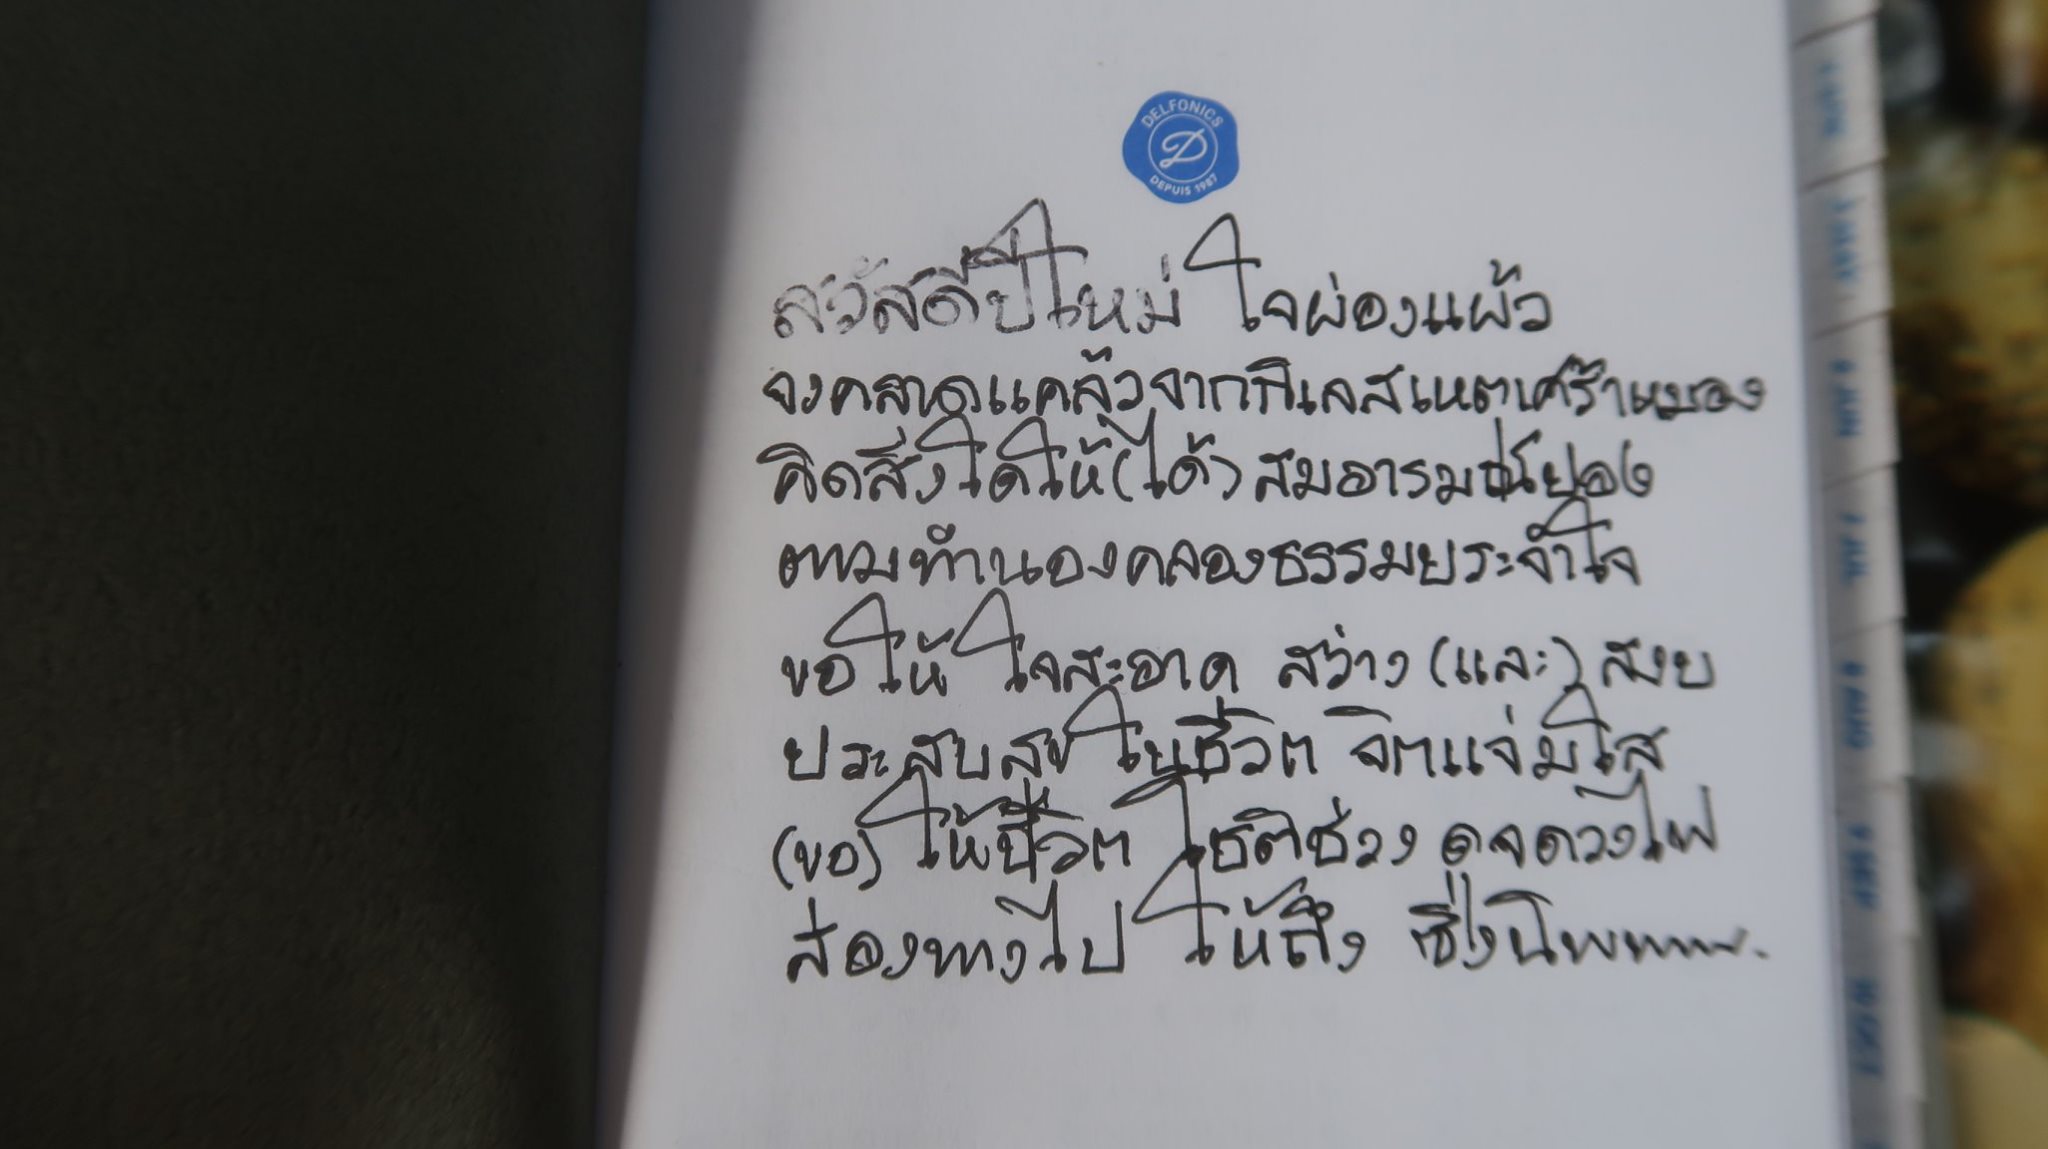 DELFONICS
D
DEPUIS 1987
สวัสดีปีใหม่ ใจผ่องแผ้ว
จงคลาดแคล้วจากกิเลสเหตุเศร้าหมอง
คิดสิ่งใดให้(ได้) สมอารมณ์ปอง
ตามทำนองคลองธรรมประจำใจ
ขอให้ ใจสะอาด สว่าง (และ) สงบ
ประสบสุข ในชีวิต จิตแจ่มใส
(ขอ) ให้ชีวิต โชติช่วง ดุจดวงไฟ
ส่องทางไป ให้ถึง ซึ่งนิพพาน.